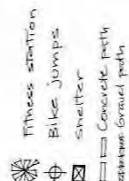 Fitness station
Bike jumps
shelter
Concrete path
Gravel path